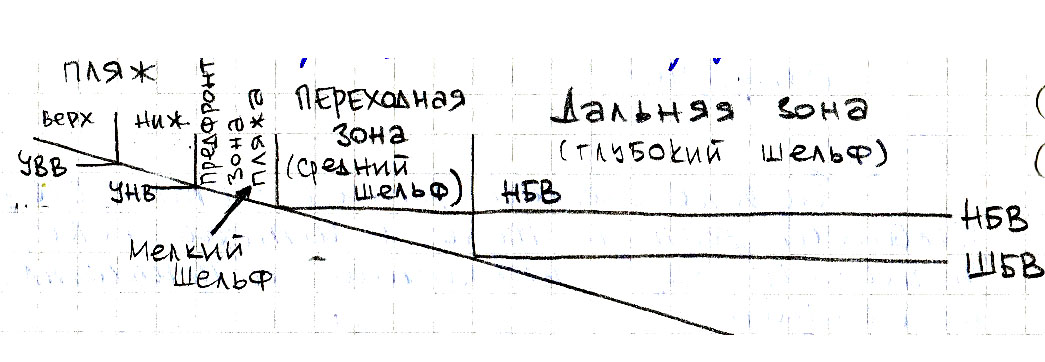 ПЛЯЖ
верх
ниж.
УВВ
УНВ
ПРЕДФРОНТ
ЗОНА
ПЛЯЖА
Мелкий
Шельф
ПЕРЕХОДНАЯ
ЗОНА
(средний
шельф)
Дальняя зона
(глубокий шельф)
НБВ
НБВ
ШБВ